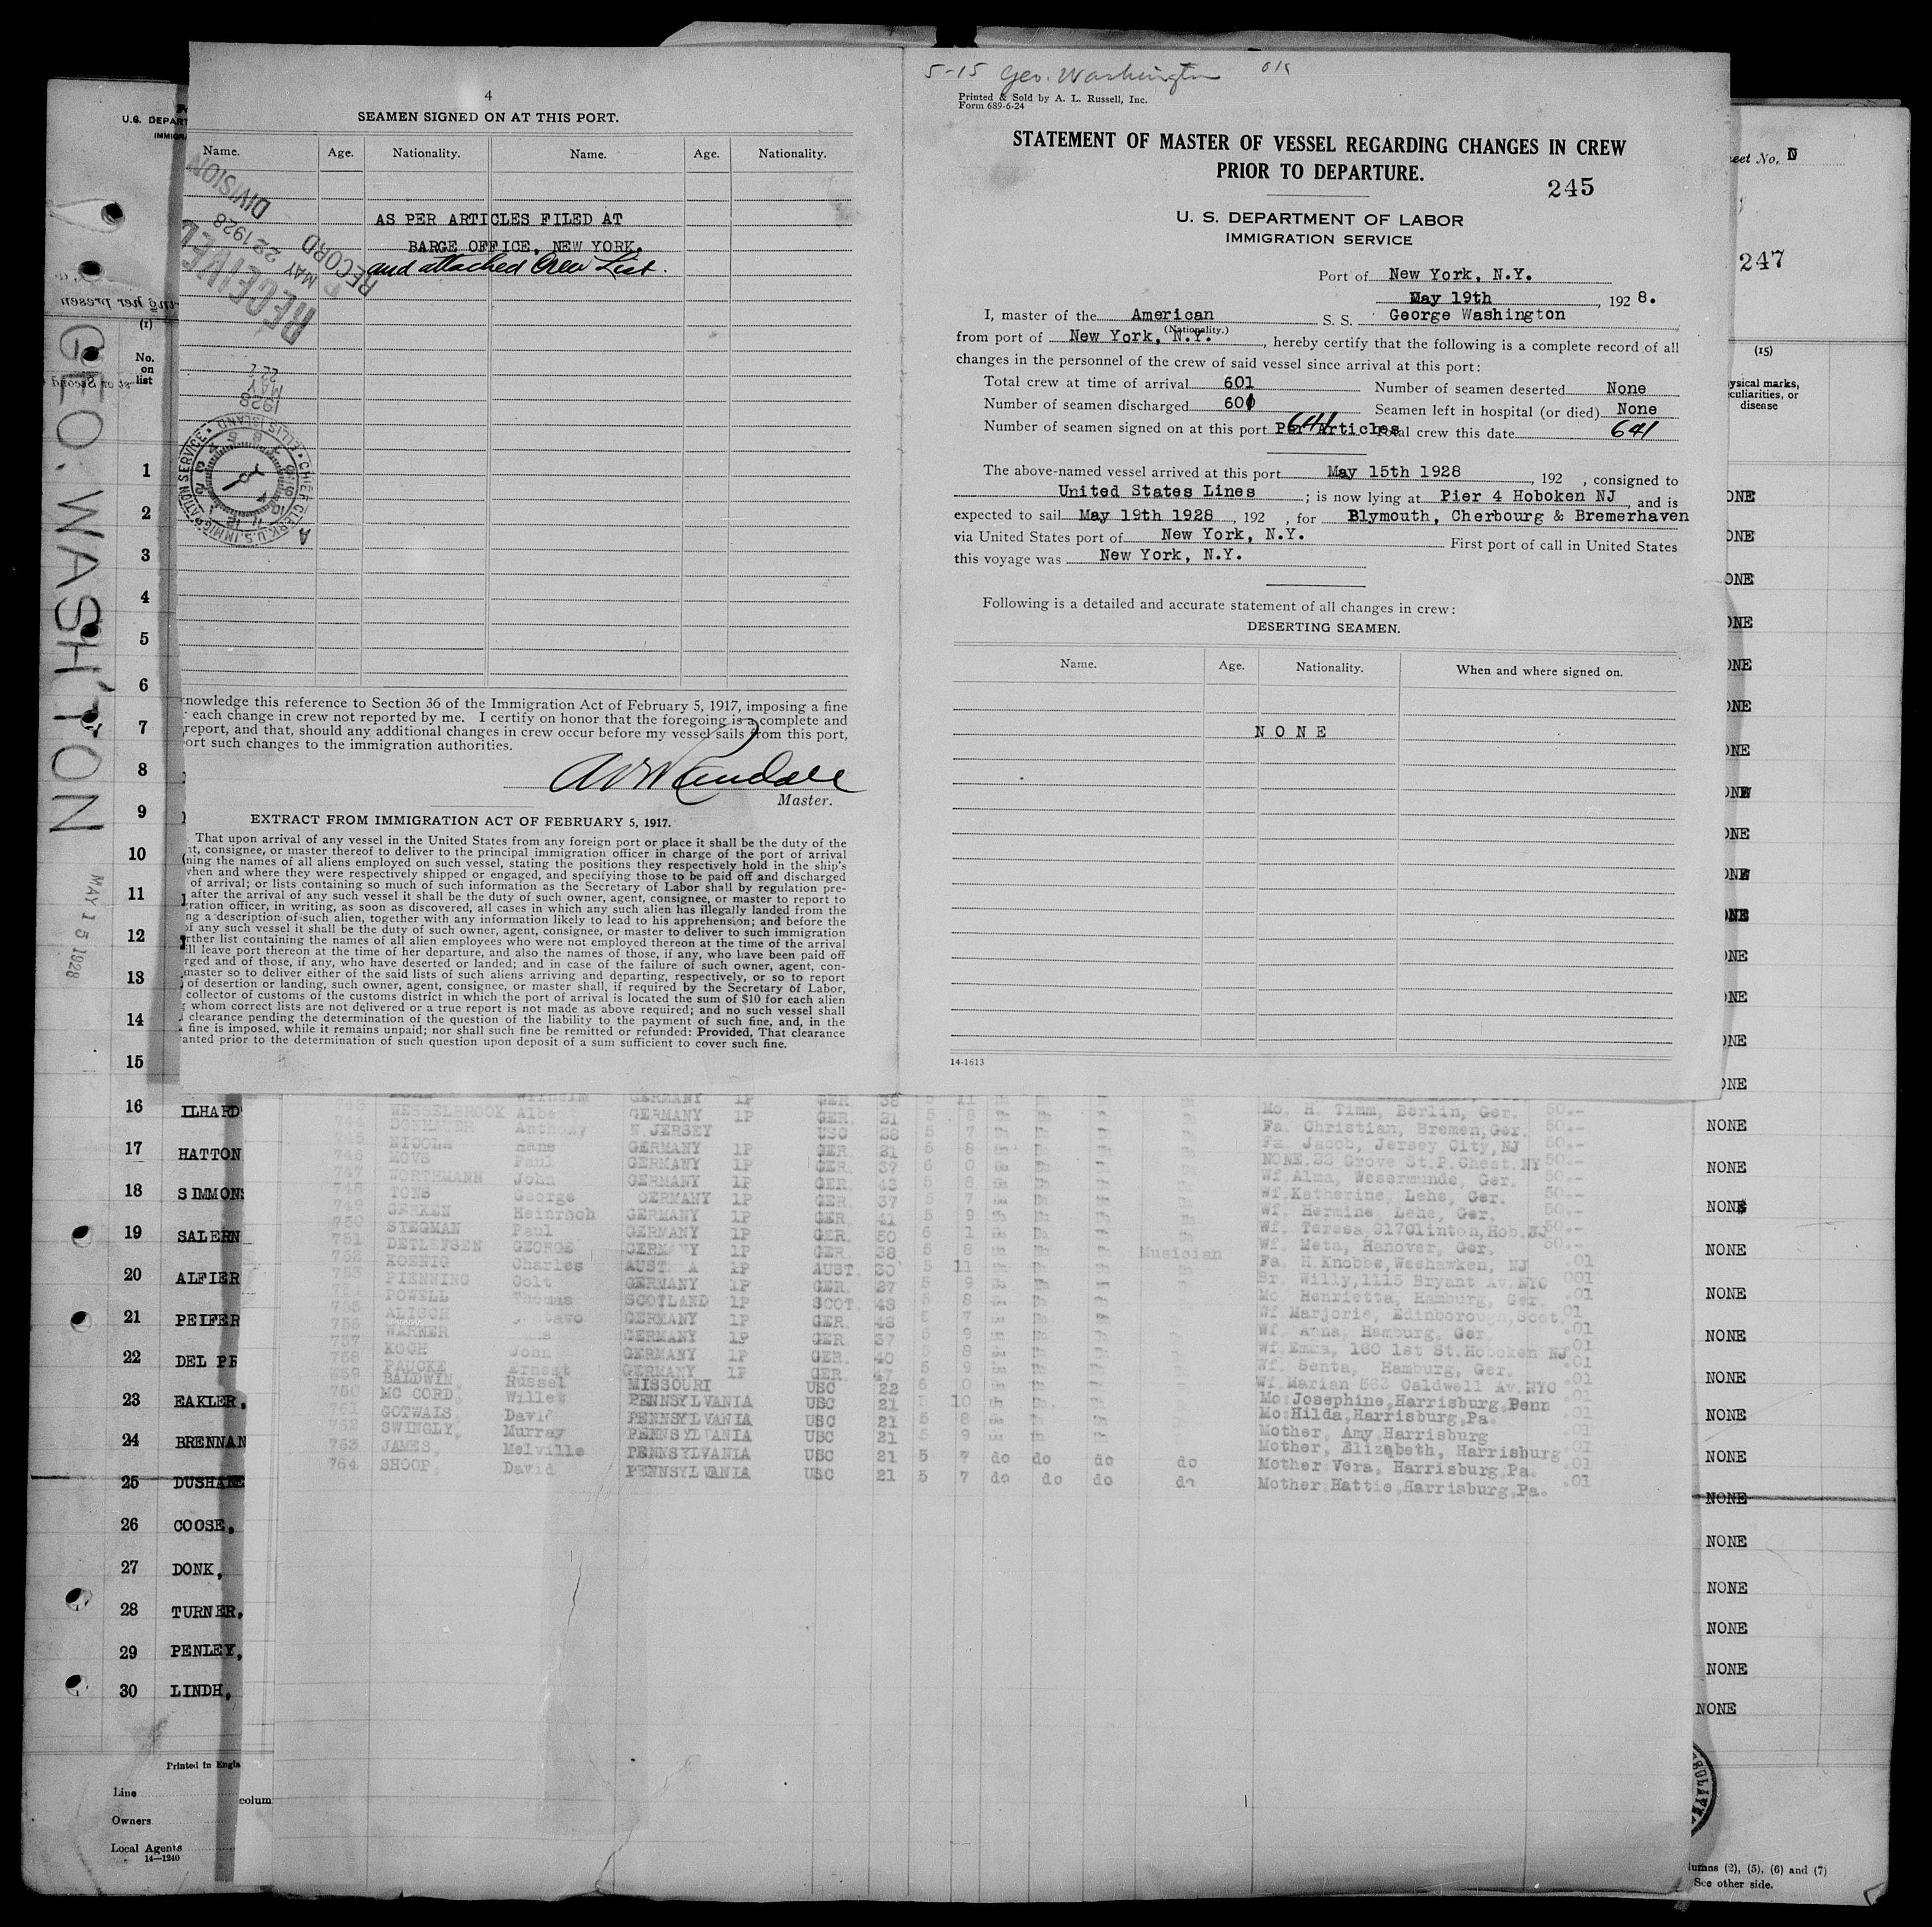 5-15 Geo. Washington OK
4
SEAMEN SIGNED ON AT THIS PORT.
Name. Age. Nationality. Name. Age. Nationality.
RECEIVED
MAY 22 1928
RECORD DIVISION
AS PER ARTICLES FILED AT
BARGE OFFICE, NEW YORK.
and attached Crew List.
1928
MAY
22
CHIEF CLERK U.S. IMMIGRATION SERVICE
ELLIS ISLAND
knowledge this reference to Section 36 of the Immigration Act of February 5, 1917, imposing a fine
each change in crew not reported by me. I certify on honor that the foregoing is a complete and
report, and that, should any additional changes in crew occur before my vessel sails from this port,
ort such changes to the immigration authorities.
Master.
EXTRACT FROM IMMIGRATION ACT OF FEBRUARY 5, 1917.
That upon arrival of any vessel in the United States from any foreign port or place it shall be the duty of the
nt, consignee, or master thereof to deliver to the principal immigration officer in charge of the port of arrival
ning the names of all aliens employed on such vessel, stating the positions they respectively hold in the ship's
when and where they were respectively shipped or engaged, and specifying those to be paid off and discharged
of arrival; or lists containing so much of such information as the Secretary of Labor shall by regulation pre-
after the arrival of any such vessel it shall be the duty of such owner, agent, consignee, or master to report to
ration officer, in writing, as soon as discovered, all cases in which any such alien has illegally landed from the
ng a description of such alien, together with any information likely to lead to his apprehension; and before the
of any such vessel it shall be the duty of such owner, agent, consignee, or master to deliver to such immigration
rther list containing the names of all alien employees who were not employed thereon at the time of the arrival
ll leave port thereon at the time of her departure, and also the names of those, if any, who have been paid off
rged and of those, if any, who have deserted or landed; and in case of the failure of such owner, agent, con-
master so to deliver either of the said lists of such aliens arriving and departing, respectively, or so to report
of desertion or landing, such owner, agent, consignee, or master shall, if required by the Secretary of Labor,
collector of customs of the customs district in which the port of arrival is located the sum of $10 for each alien
whom correct lists are not delivered or a true report is not made as above required; and no such vessel shall
clearance pending the determination of the question of the liability to the payment of such fine, and, in the
fine is imposed, while it remains unpaid; nor shall such fine be remitted or refunded: Provided, That clearance
anted prior to the determination of such question upon deposit of a sum sufficient to cover such fine.
Printed & Sold by A. L. Russell, Inc.
Form 689-6-24
STATEMENT OF MASTER OF VESSEL REGARDING CHANGES IN CREW
PRIOR TO DEPARTURE.
245
U. S. DEPARTMENT OF LABOR
IMMIGRATION SERVICE
Port of New York, N.Y.
May 19th, 1928.
I, master of the American S. S. George Washington
(Nationality.)
from port of New York, N.Y., hereby certify that the following is a complete record of all
changes in the personnel of the crew of said vessel since arrival at this port:
Total crew at time of arrival 601 Number of seamen deserted None
Number of seamen discharged 601 Seamen left in hospital (or died) None
Number of seamen signed on at this port Per Articles 641 Total crew this date 641
The above-named vessel arrived at this port May 15th 1928, 192 , consigned to
United States Lines; is now lying at Pier 4 Hoboken NJ, and is
expected to sail May 19th 1928, 192 , for Blymouth, Cherbourg & Bremerhaven
via United States port of New York, N.Y. First port of call in United States
this voyage was New York, N.Y.
Following is a detailed and accurate statement of all changes in crew:
DESERTING SEAMEN.
Name. Age. Nationality. When and where signed on.
NONE
14-1613
U.S. DEPART
IMMIGRA
GEO. WASH'TON
MAY 15 1928
(1)
No.
on
list
1
2
3
4
5
6
7
8
9
10
11
12
13
14
15
16 ILHARD
17 HATTON
18 SIMMONS
19 SALERN
20 ALFIER
21 PEIFER
22 DEL PE
23 EAKLER,
24 BRENNAN
25 DUSHANE
26 COOSE,
27 DONK,
28 TURNER,
29 PENLEY,
30 LINDH,
Printed in Engla
Line
Owners
Local Agents
14-1240
colum
WESSELBROOK Albe GERMANY 1P GER 21 5 8 Mo. H. Timm, Berlin, Ger. 50.--
DONHAUER Anthony N. JERSEY USC 28 5 7 Fa. Christian, Bremen, Ger. 50.--
NICOLA Hans GERMANY 1P GER. 31 5 8 Fa. Jacob, Jersey City, NJ 50.--
MOVS Paul GERMANY 1P GER. 37 6 0 NONE. 22 Grove St. P. Chest. NY 50.--
747 WORTHMANN John GERMANY 1P GER. 43 5 8 Wf. Alma, Wesermunde, Ger. 50.--
748 TONS George GERMANY 1P GER. 37 7 Wf. Katherine, Lehe, Ger. 50.--
749 GERKEN Heinrach GERMANY 1P GER. 41 5 9 Wf. Hermine, Lehe, Ger. 50.--
750 STEGMAN Paul GERMANY 1P GER. 50 1 Wf. Teresa, 917Clinton, Hob. NJ 50.--
751 DETLEFSEN GEORGE GERMANY 1P GER. 38 5 8 Musician Wf. Meta, Hanover, Ger. 50.--
752 KOENIG Charles AUST A 1P AUST. 30 5 11 Fa. H. Knobbe, Weehawken, NJ .01
753 PIENNING Colt GERMANY 1P GER. 27 5 9 Br. Willy, 1115 Bryant Av. NYC 001
POWELL Thomas SCOTLAND 1P SCOT. 48 5 8 Mo. Henrietta, Hamburg, Ger. .01
755 ALISCH tavo GERMANY 1P GER. 48 5 7 Wf. Marjorie, Edinborough, Scot. .01
756 WARNER GERMANY 1P GER 37 5 9 Wf. Anna, Hamburg, Ger. .01
757 KOCH John GERMANY 1P GER. 40 8 Wf. Emma, 160 1st St. Hoboken NJ .01
758 PAUCKE Ernest GERMANY 1P GER. 47 5 9 Wf. Senta, Hamburg, Ger. .01
759 BALDWIN, Russel MISSOURI USC 22 6 0 Wf. Marian 563 Caldwell Av. NYC .01
760 MC CORD, Willes PENNSYLVANIA USC 21 10 Mo: Josephine, Harrisburg, Penn .01
761 GOTWALS, David PENNSYLVANIA USC 21 5 8 Mo: Hilda, Harrisburg, Pa. .01
762 SWINGLY, Murray PENNSYLVANIA USC 21 5 9 Mother, Amy, Harrisburg .01
763 JAMES, Melville PENNSYLVANIA USC 21 5 7 do do do do Mother, Elizabeth, Harrisburg .01
764 SHOOP, David PENNSYLVANIA USC 21 5 7 do do do do Mother Vera, Harrisburg, Pa. .01
Mother Hattie, Harrisburg, Pa. .01
eet No.
247
(15)
ysical marks,
culiarities, or
disease
ONE
ONE
ONE
ONE
ONE
ONE
ONE
ONE
ONE
ONE
ONE
ONE
ONE
ONE
ONE
NONE
NONE
NONE
NONE
NONE
NONE
NONE
NONE
NONE
NONE
NONE
NONE
NONE
NONE
NONE
lumns (2), (5), (6) and (7)
See other side.